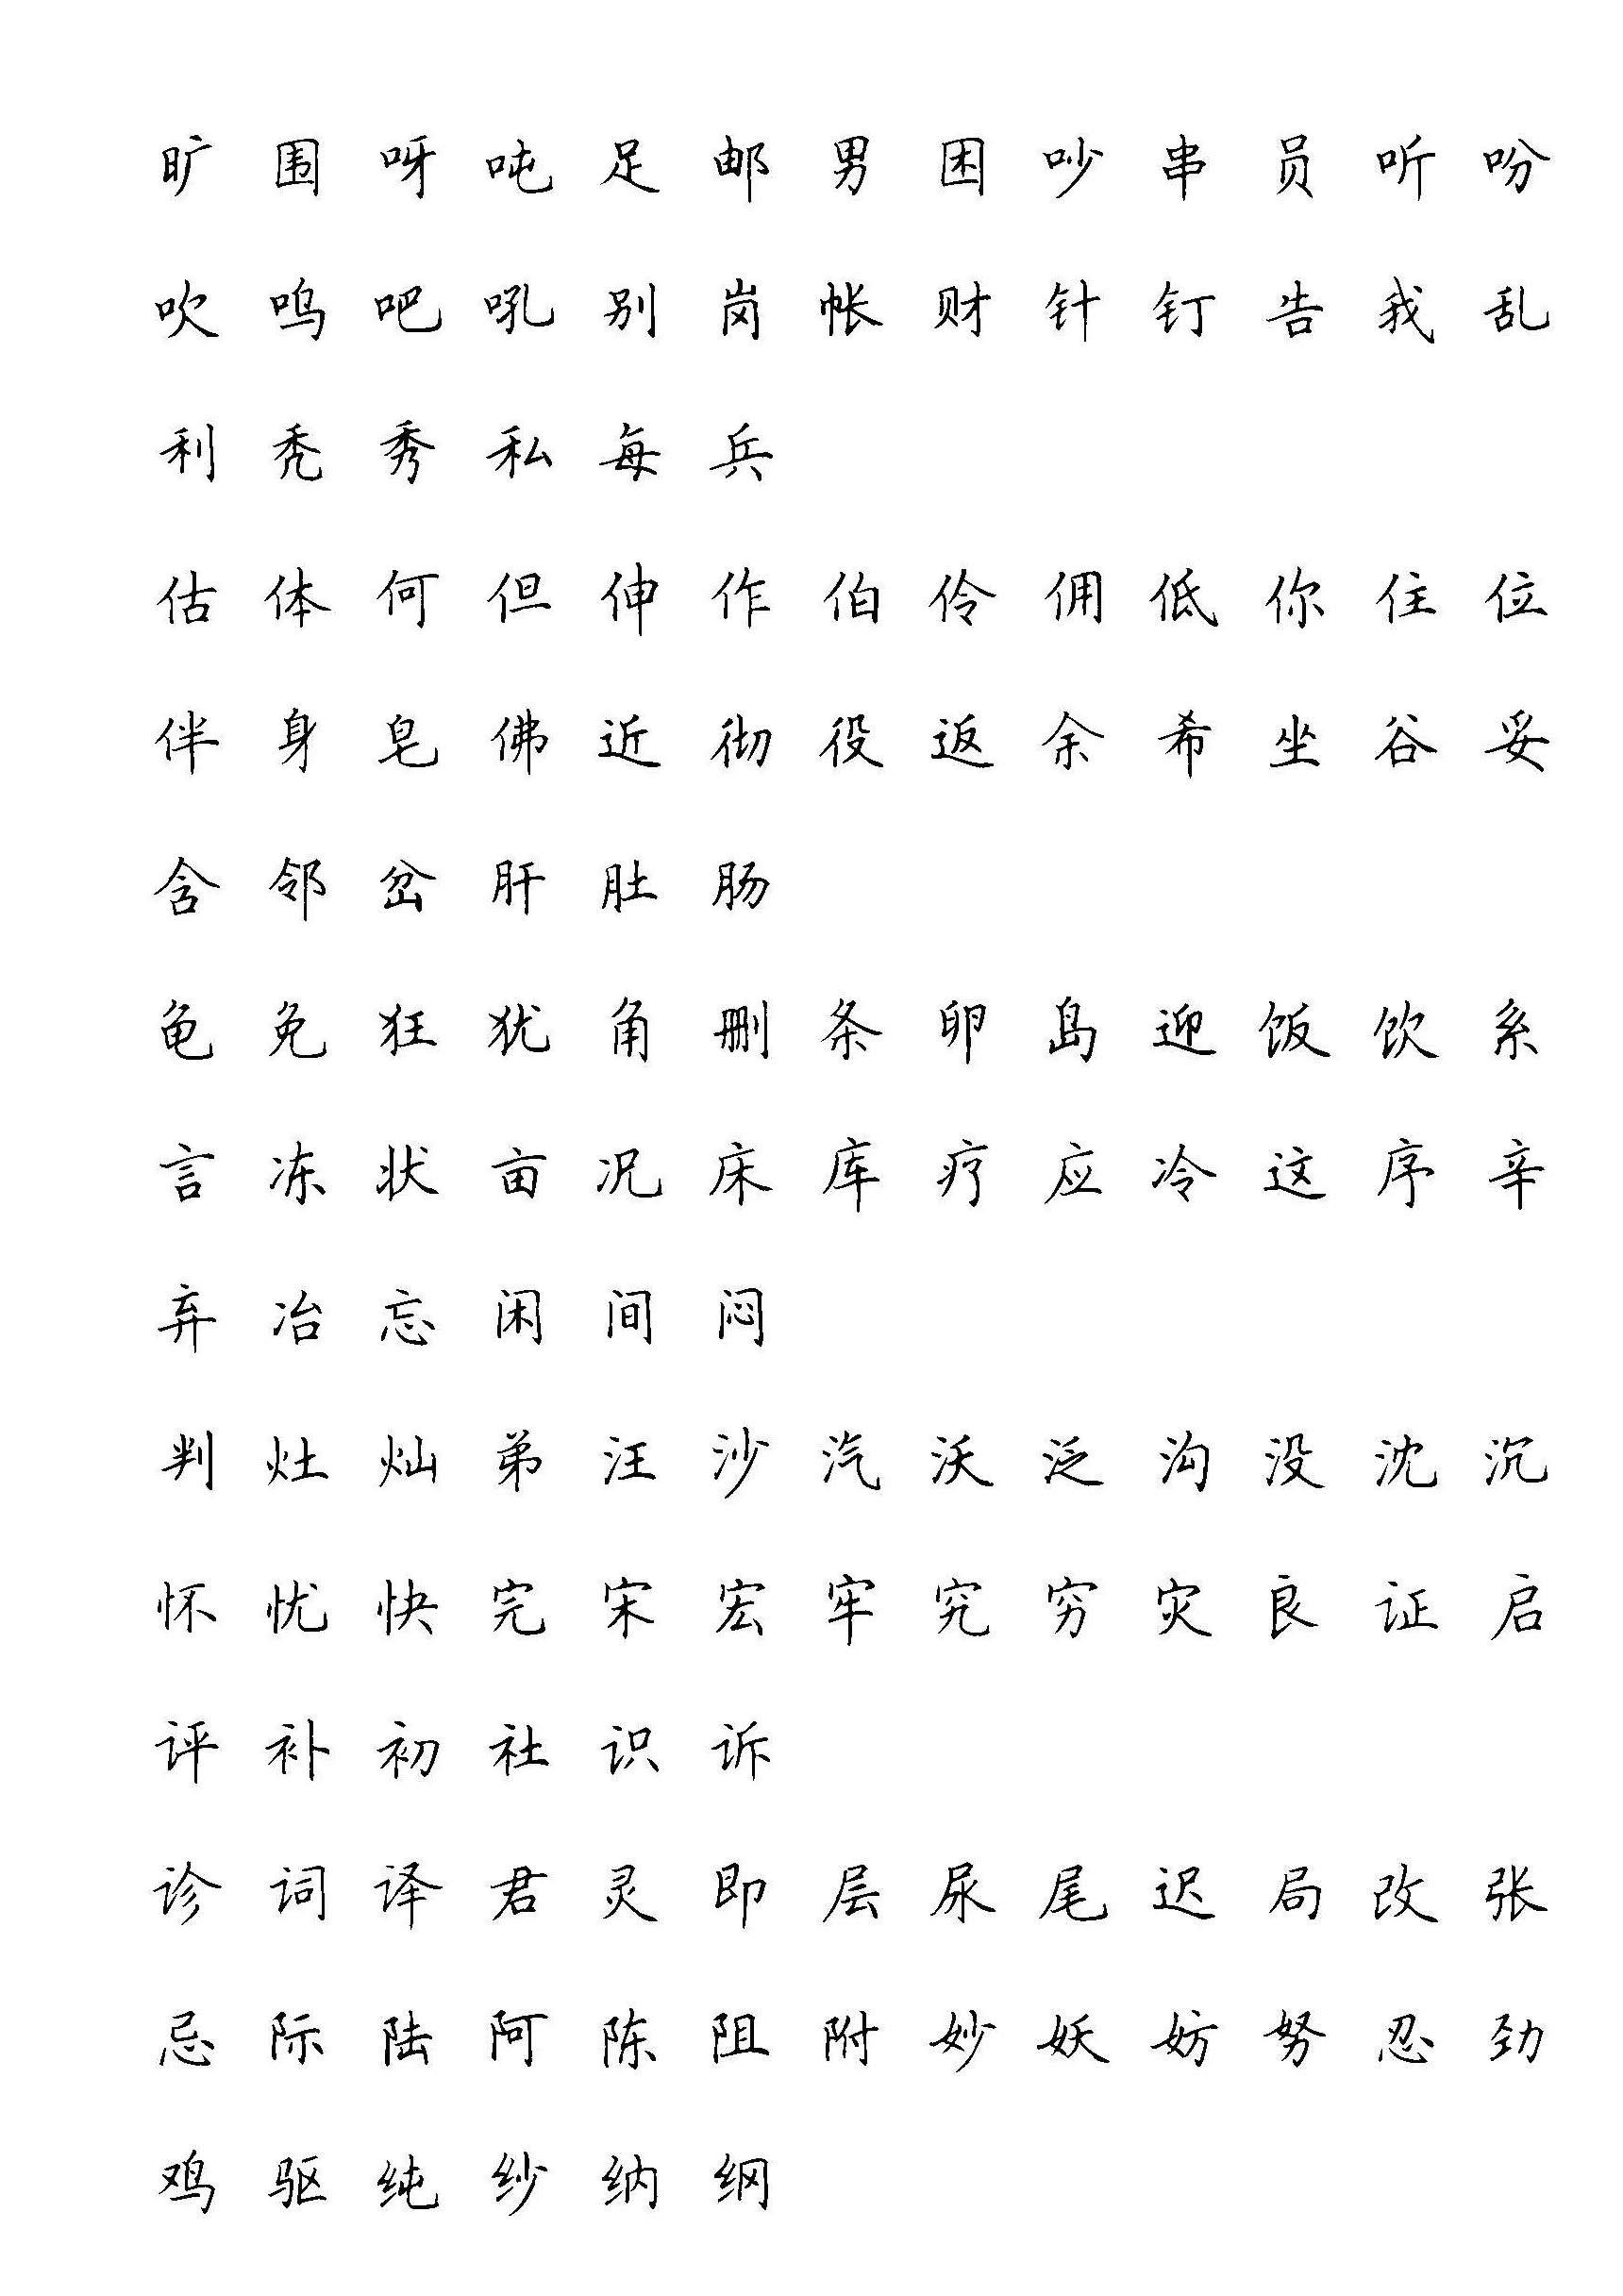 旷 围 呀 吨 足 邮 男 困 吵 串 员 听 吩
吹 呜 吧 吼 别 岗 帐 财 针 钉 告 我 乱
利 秃 秀 私 每 兵
估 体 何 但 伸 作 伯 伶 佣 低 你 住 位
伴 身 皂 佛 近 彻 役 返 余 希 坐 谷 妥
含 邻 岔 肝 肚 肠
龟 免 狂 犹 角 删 条 卵 岛 迎 饭 饮 系
言 冻 状 亩 况 床 库 疗 应 冷 这 序 辛
弃 冶 忘 闲 间 闷
判 灶 灿 弟 汪 沙 汽 沃 泛 沟 没 沈 沉
怀 忧 快 完 宋 宏 牢 究 穷 灾 良 证 启
评 补 初 社 识 诉
诊 词 译 君 灵 即 层 尿 尾 迟 局 改 张
忌 际 陆 阿 陈 阻 附 妙 妖 妨 努 忍 劲
鸡 驱 纯 纱 纳 纲